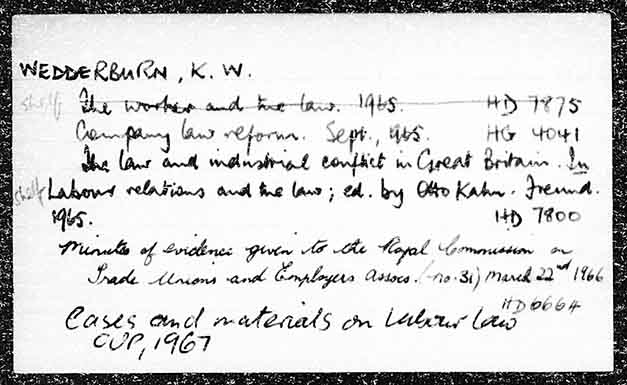 WEDDERBURN, K. W.
shelf The worker and the law. 1965. HD 7875
Company law reform. Sept., 1965. HG 4041
The law and industrial conflict in Great Britain. In
shelf Labour relations and the law; ed. by Otto Kahn-Freund.
1965. HD 7800
Minutes of evidence given to the Royal Commission on
Trade Unions and Employers Assocs. (no. 31) March 22nd 1966
HD 6664
Cases and materials on Labour law
CUP, 1967